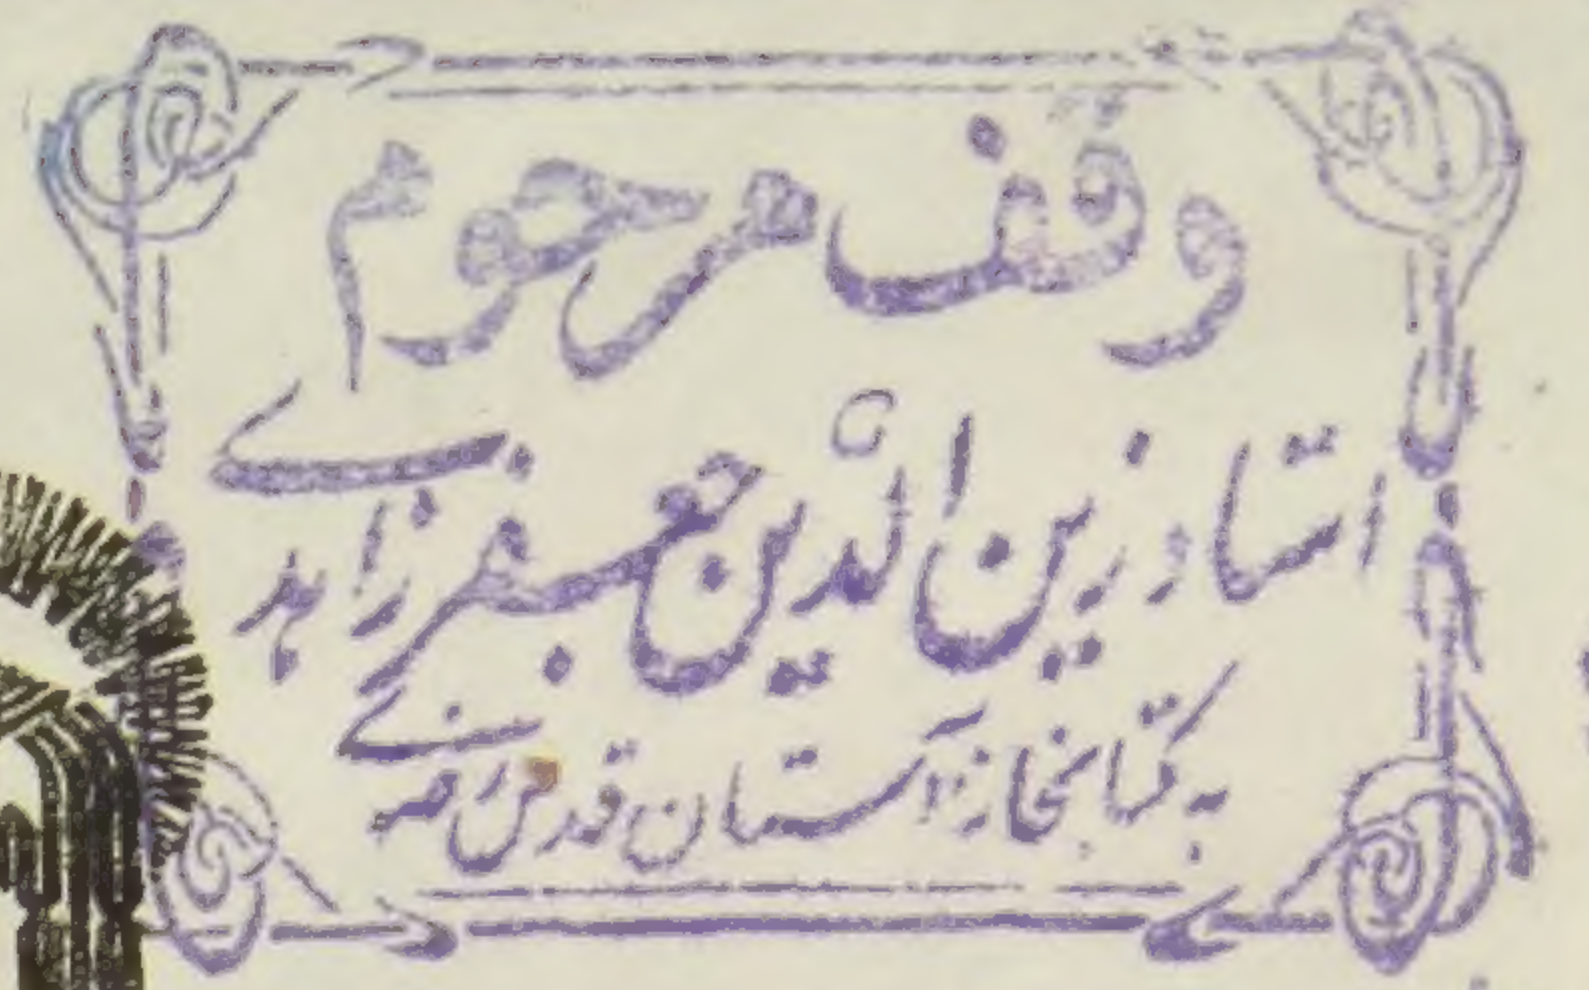 وقف مرحوم
استاد زین الدین جعفر زاهدی
به کتابخانه آستان قدس رضوی